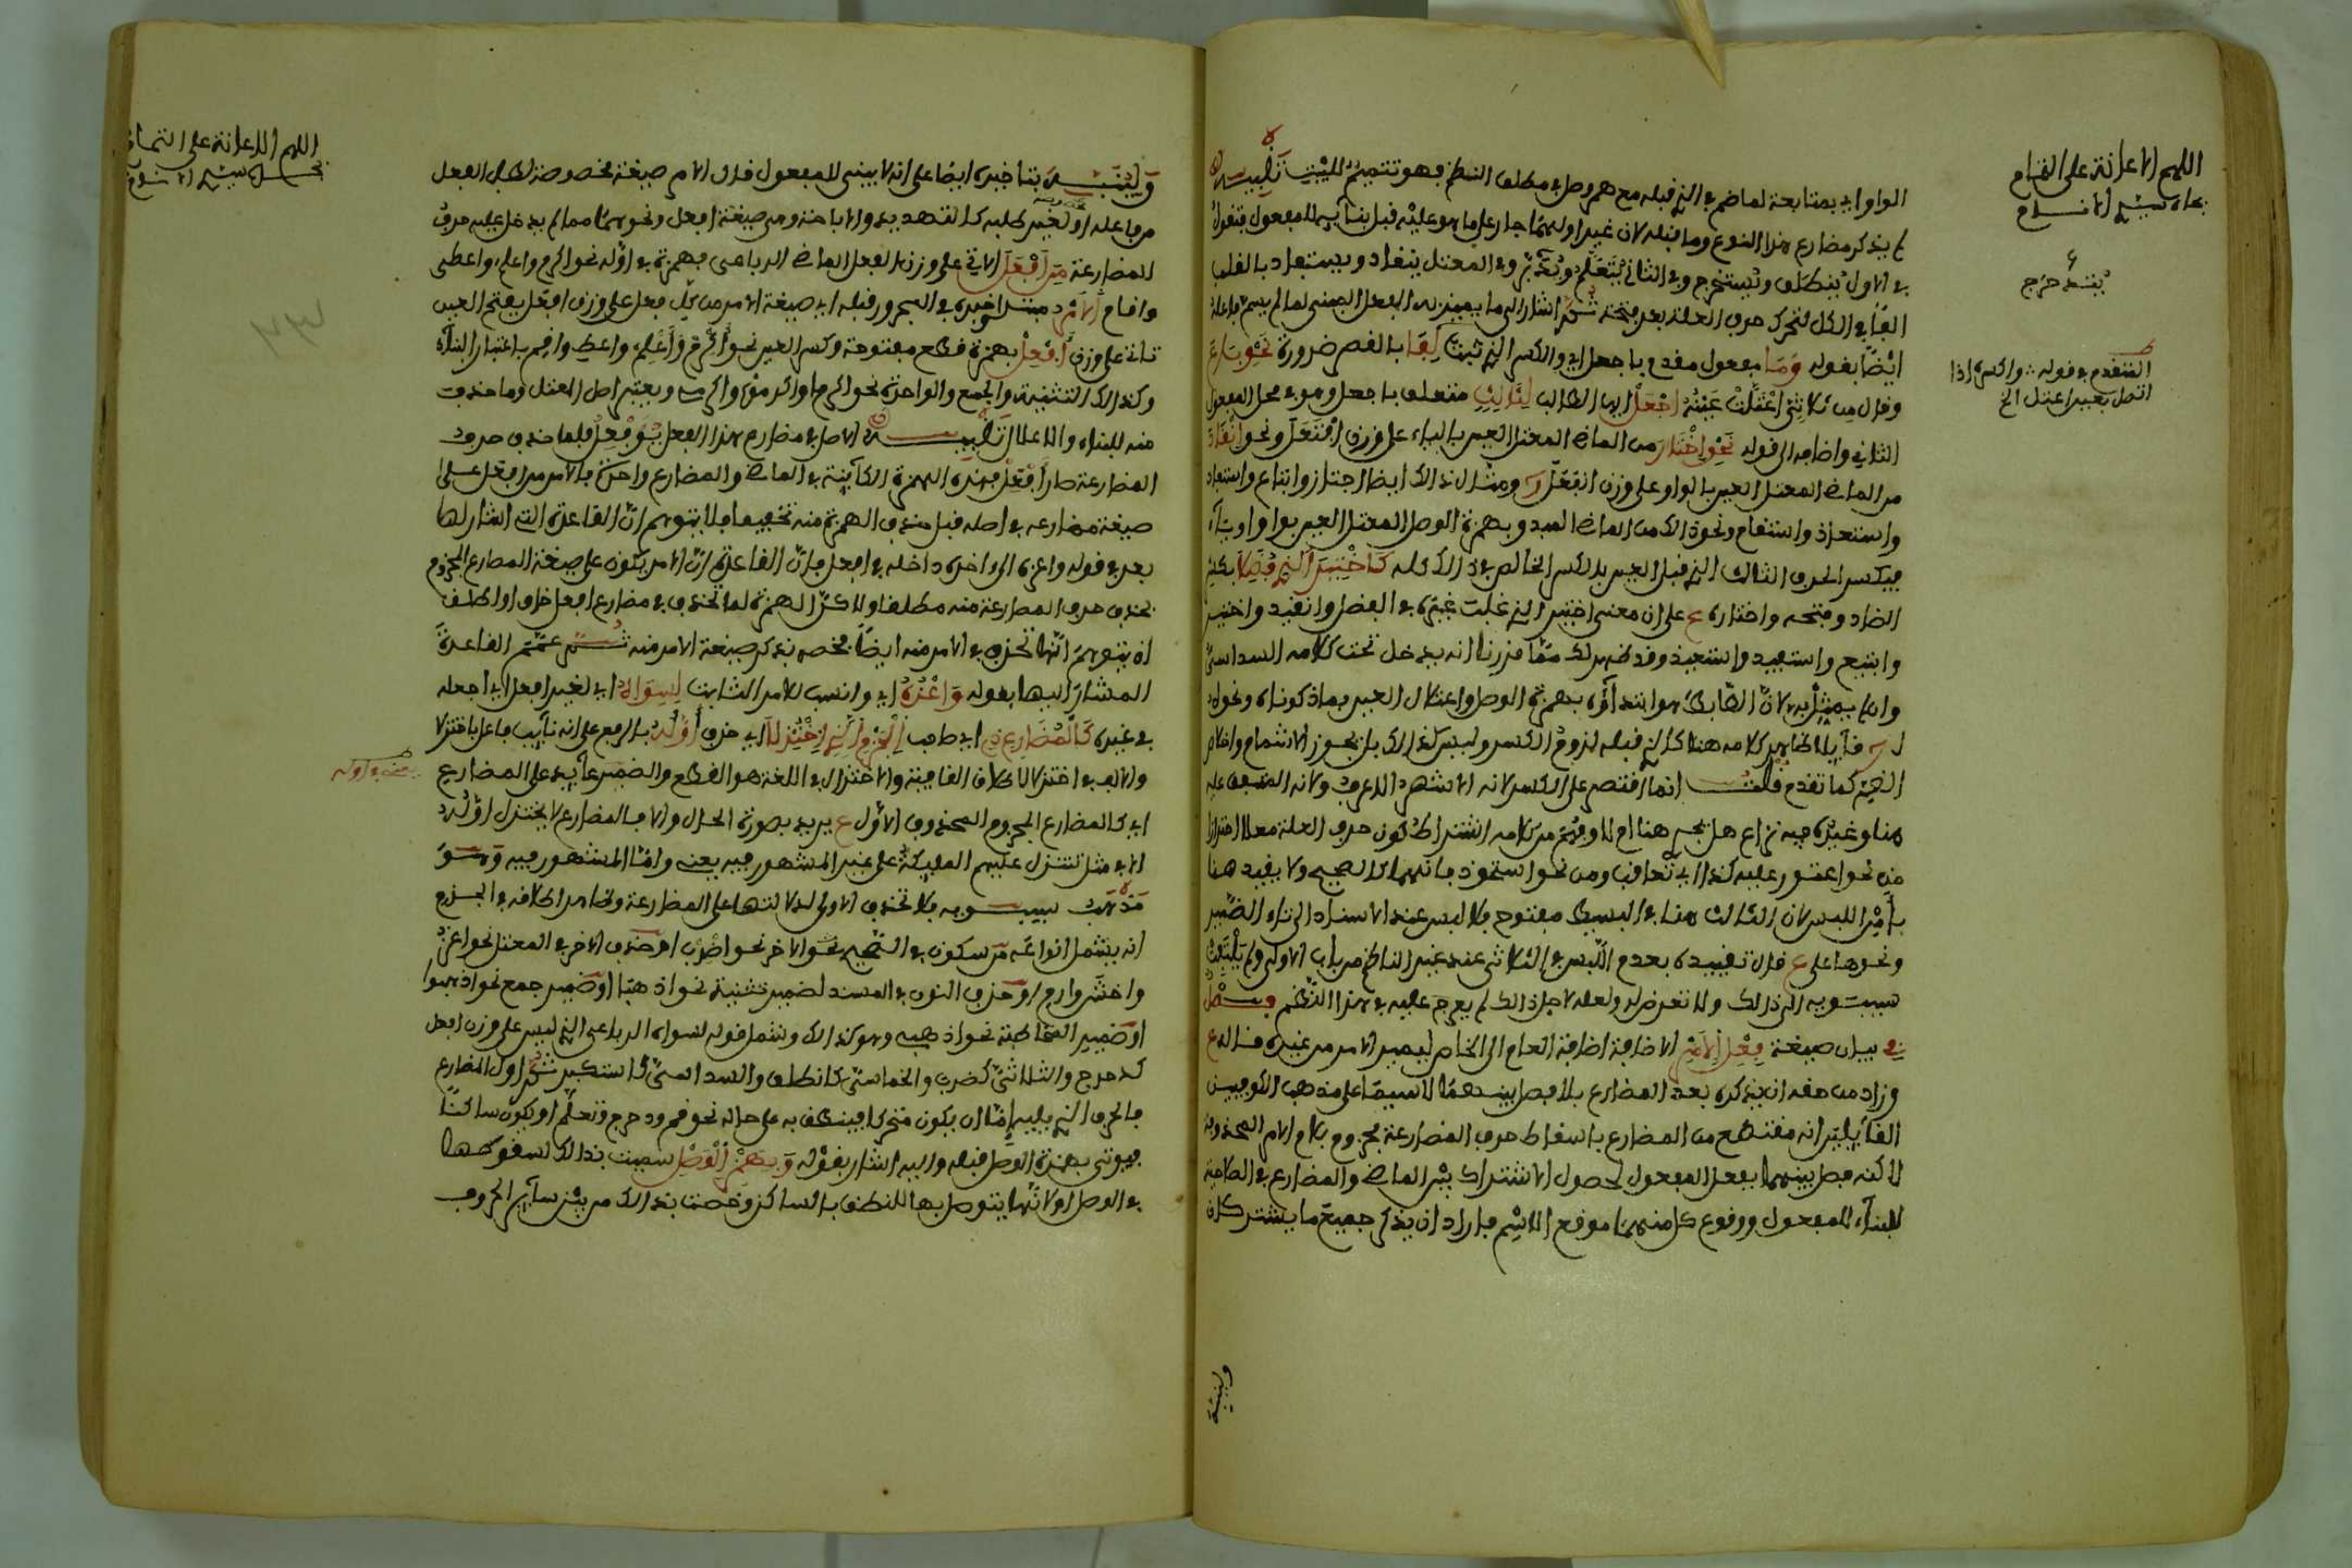 اللهم الاعانة على التمام
بجاه سيد الانام
الواو اي بمتابعة لما ضم في الذي قبله مع همز وصل في مطلق النطق فهو تتميم للبيت تنبيه
لم يذكر مضارع هذا النوع وما قبله لان غير اولهما جار على ما هو عليه قبل بنائه للمفعول فتقول
في الاول ينطلق ويستخرج وفي الثاني يتعلم وفي المعتل ينقاد ويستعاد بالقلب
الفا في الكل لتحرك حرف العلة بعد فتحة ثم اشار الى ما يتميز به الفعل المبني لما لم يسم فاعله
ايضا بقوله وما مفعول مقدم باجعل اي والكسر الذي ثبت لفا بالقصر ضرورة نحو باع
وقال من ثلاثي اعتلت عينه اجعل ايها الطالب لثالث متعلق باجعل وهو في محل المفعول
الثاني واضافه الى قوله نحو اختار من الماضي المعتل العين بالياء على وزن افتعل ونحو انقاد
من الماضي المعتل العين بالواو على وزن انفعل ومثال ذلك ايضا اجتاز وابتاع واستعاد
واستعاذ واستقام ونحو ذلك من الماضي المبدو بهمزة الوصل المعتل العين بواو او ياء
فيكسر الحرف الثالث الذي قبل العين بالكسر الخالص في ذلك كله كاختير الذي فضلا بكسر
الضاد وفتحه واختاره ع على ان معنى اختير الذي غلبت غيره في الفضل وانقيد واختير
وابتيع واستعيد واستعيذ وقد ظهر لك مما قررنا انه يدخل تحت كلامه السداسي
وان لم يمثل به لان الضابط هو ابتداؤه بهمزة الوصل واعتلال العين بما ذكرناه ونحوه
فايلا ظاهر كلامه هنا كالذي قبله لزوم الكسر وليس كذلك بل يجوز الاشمام واخلاص
الضم كما تقدم قلت انما اقتصر على الكسر لانه الاشهر الاعرف ولانه المتفق عليه
هنا وغيره فيه نزاع هل يجري هنا ام لا وفهم من كلامه اشتراط كون حرف العلة معلا احترازا
من نحو اعتور عليه كذا اي تعاقب ومن نحو استحوذ فانهما كالصحيح ولا يقيد هنا
بامن اللبس لان الثالث هنا في البسيط مفتوح فلا لبس عند الاسناد الى تاء الضمير
ونحوها على ع قال تقييده بعدم اللبس في الثلاثي عند غير الناظم من باب الاولى ولم يلتفت
سيبويه الى ذلك ولا تعرض له ولعله لاجل ذلك لم يعرج عليه في هذا النظم فصل
في بيان صيغة فعل الامر الاضافة اضافة العام الى الخاص ليميز الامر من غيره قال ع
وزاد من حقه ان يذكره بعد المضارع بلا فصل بينهما لاسيما على مذهب الكوفيين
القائلين انه مقتطع من المضارع باسقاط حرف المضارعة مجزوم بلام الامر المحذوفة
لاكنه فصل بينهما بفعل المفعول لحصول الاشتراك بين الماضي والمضارع في الصلاحية
للبناء للمفعول ووقوع كل منهما موقع الاسم فاراد ان يذكر جميع ما يشتركان
وليبنيه
ينتد حرج
المتقدم في قوله واكسر اذا
اتصل بعين اعتل الخ
اللهم الاعانة على التمام
بجاه سيد الانام
بتاخيره ايضا على انه لا يبنى للمفعول فان الامر صيغة مخصوصة لطلب الفعل
من فاعله او لغير طلبه كالتهديد والاباحة ومن صيغته افعل ونحوهما مما لم يدخل عليه حرف
المضارعة من افعل الاتي على وزن الفعل الماضي الرباعي بهمزة في اوله نحو اكرم واعلم واعطى
واقام الامر مبتدا خبره في المجرور قبله اي صيغة الامر من كل فعل على وزن افعل بفتح العين
تاتي على وزن افعل بهمزة قطع مفتوحة وكسر العين نحو اكرم واعلم واعط واقم باعتبار البناء
وكذلك التثنية والجمع والواحدة نحو اكرما واكرموا واكرمي ويعتبر اصل المعتل وما حذف
منه للبناء والاعلال تنبيه الاصل في مضارع هذا الفعل يؤفعل فلما حذف حرف
المضارعة صار افعل فهذه الهمزة الكائنة في الماضي والمضارع واحدة فالامر من افعل على
صيغة مضارعه في اصله قبل حذف الهمزة منه تخفيفا فلا يتوهم ان القاعدة التي اشار لها
بعد في قوله واعزه الى واخره داخله في افعل فان القاعدة ان الامر يكون على صيغة المضارع المجزوم
بحذف حرف المضارعة منه مطلقا ولاكن الهمزة لما تحذف في مضارع افعل خاف او لطف
ان يتوهم انها تحذف في الامر منه ايضا فخصه بذكر صيغة الامر منه ثم عمم القاعدة
المشار اليها بقوله واعزه اي وانسب للامر الثابت لسواه اي لغير افعل اي اجعله
في غيره كالمضارع ذي اي صاحب الجزم الذي اختزلا اي حذف اوله بالرفع على انه نائب فاعل باختزلا
والالف في اختزلا لاطلاق القافية والاختزال في اللغة هو القطع والضمير عائد على المضارع
بحذف اوله
اي كالمضارع المجزوم المحذوف الاول ع يريد بصورة الحال والا فالمضارع لا يختزل اوله
الا في مثل تتنزل عليهم الملئكة على غير المشهور فيه يعني واما المشهور فيه وهو
مذهب سيبويه فلا تحذف الاولى لدلالتها على المضارعة وظاهر اطلاقه في الجزم
انه يشمل انواعه من سكون في الصحيح نحو الاخر نحو اضرب او حذف الاخر في المعتل نحو اغز
واخش وارم او حذف النون في المسند لضمير تثنية نحو اذهبا او ضمير جمع نحو اذهبوا
او ضمير المخاطبة نحو اذهبي وهو كذلك وشمل قوله لسواه الرباعي الذي ليس على وزن افعل
كدحرج والثلاثي كضرب والخماسي كانطلق والسداسي كاستكبر ثم اول المضارع
فالحرف الذي يليه اما ان يكون متحركا فينطق به على حاله نحو قم ودحرج وتعلم او يكون ساكنا
فيوتى بهمزة الوصل قبله واليه اشار بقوله وبهمز الوصل سميت بذلك لسقوطها
في الوصل او لانها يتوصل بها للنطق بالساكن وخصت بذلك من بين سائر الحروف